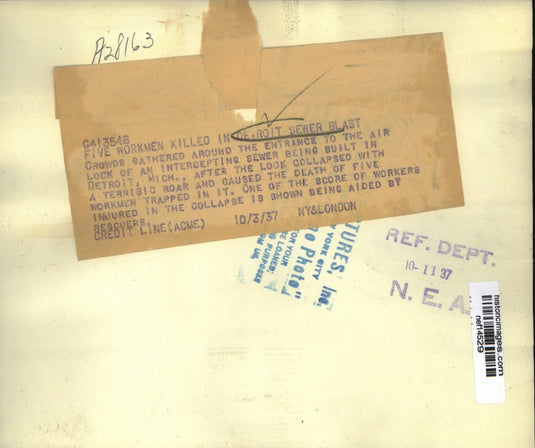 A28163
G413548
FIVE WORKMEN KILLED IN DETROIT SEWER BLAST
CROWDS GATHERED AROUND THE ENTRANCE TO THE AIR
LOCK OF AN INTERCEPTING SEWER BEING BUILT IN
DETROIT, MICH., AFTER THE LOCK COLLAPSED WITH
A TERRIBIC ROAR AND CAUSED THE DEATH OF FIVE
WORKMEN TRAPPED IN IT. ONE OF THE SCORE OF WORKERS
INJURED IN THE COLLAPSE IS SHOWN BEING AIDED BY
RESCUERS.
CREDIT LINE(ACME) 10/3/37 NY&LONDON
TURES, Inc.
YORK CITY
Photo"
FOR YOUR
LOANED
PURPOSES
REF. DEPT.
10-11 37
N. E. A.
historicimages.com
nef14529